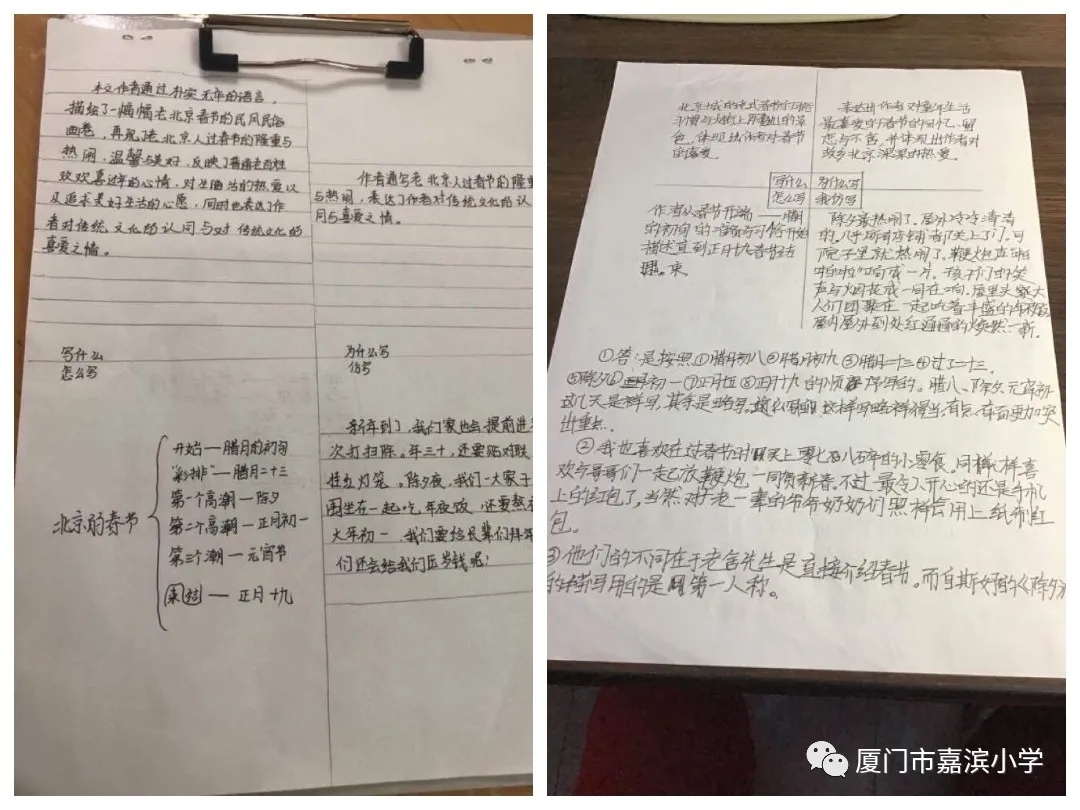 本文作者通过朴实无华的语言,
描绘了一幅幅老北京春节的民风民俗
画卷,再现老北京人过春节的隆重与
热闹、温馨与美好,反映了普通老百姓
欢欢喜过年的心情,对生活的热爱以
及追求美好生活的心愿,同时也表达了作
者对传统文化的认同与对传统文化的
喜爱之情。
作者通写老北京人过春节的隆重
与热闹,表达了作者对传统文化的认
同与喜爱之情。
写什么
怎么写
为什么写
仿写
北京的春节
开始—腊月的初旬
"彩排"—腊月二十三
第一个高潮—除夕
第二个高潮—正月初一
第三个潮—元宵节
结—正月十九
新年到了,我们家也会提前进
次打扫除。年三十,还要贴对联
挂红灯笼。除夕夜,我们一大家子
围坐在一起吃年夜饭,还要熬
大年初一,我们要给长辈们拜年
们还会给我们压岁钱呢!
北京城的老式春节
习惯与大街上
色,体现出作者对春节
的喜爱。
表达出作者对童年生活
最喜爱的春节的回忆、留
恋与不舍,并体现出作者对
故乡北京深深的热爱。
写什么
为什么写
怎么写
我仿写
作者从春节开端——腊月
的初旬的准备与习俗开始
描述直到正月十九春节结
束。
除夕最热闹了。屋外冷冷清清
的,店铺都关上了门,可
院子里就热闹了,鞭炮声啪
啪啪啪响成一片。孩子们的笑
声与烟花成一同在响。屋里头家大
人们团聚在一起吃着丰盛的年夜饭
屋内屋外到处红通通的焕然一新。
①答:是按照①腊月初八②腊月初九③腊月二十三④过了二十三
⑤除夕⑥初一⑦正月五⑧正月十九的顺序写的。腊八、除夕、元宵初一
这几天是详写,其余是略写。这样写略详得当,有点有面更加突
出重点。
②我也喜欢在过春节时买上零七八碎的小零食,同样喜
欢与哥哥们一起放鞭炮一同贺新春。不过最令人开心的还是手机
上的红包了,当然对于老一辈的爷爷奶奶们照样会用上纸币红
包。
③他们的不同在于老舍先生是直接介绍春节。而自斯妤的《除夕
的描写用的是用第一人称。
厦门市嘉滨小学